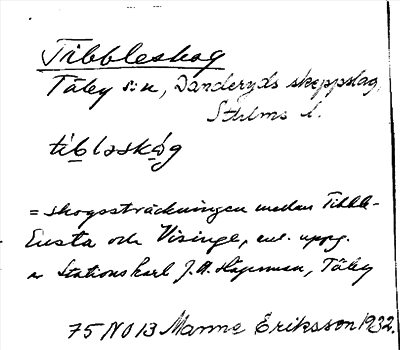 Tibbleskog
Täby sn, Danderyds skeppslag,
Sthlms l.
tiblaskåg
= skogssträckningen mellan Tibble-
Ensta och Visinge, enl. uppg.
av Stationskarl J. A. Hageman, Täby
75 NO 13 Manne Eriksson 1932.